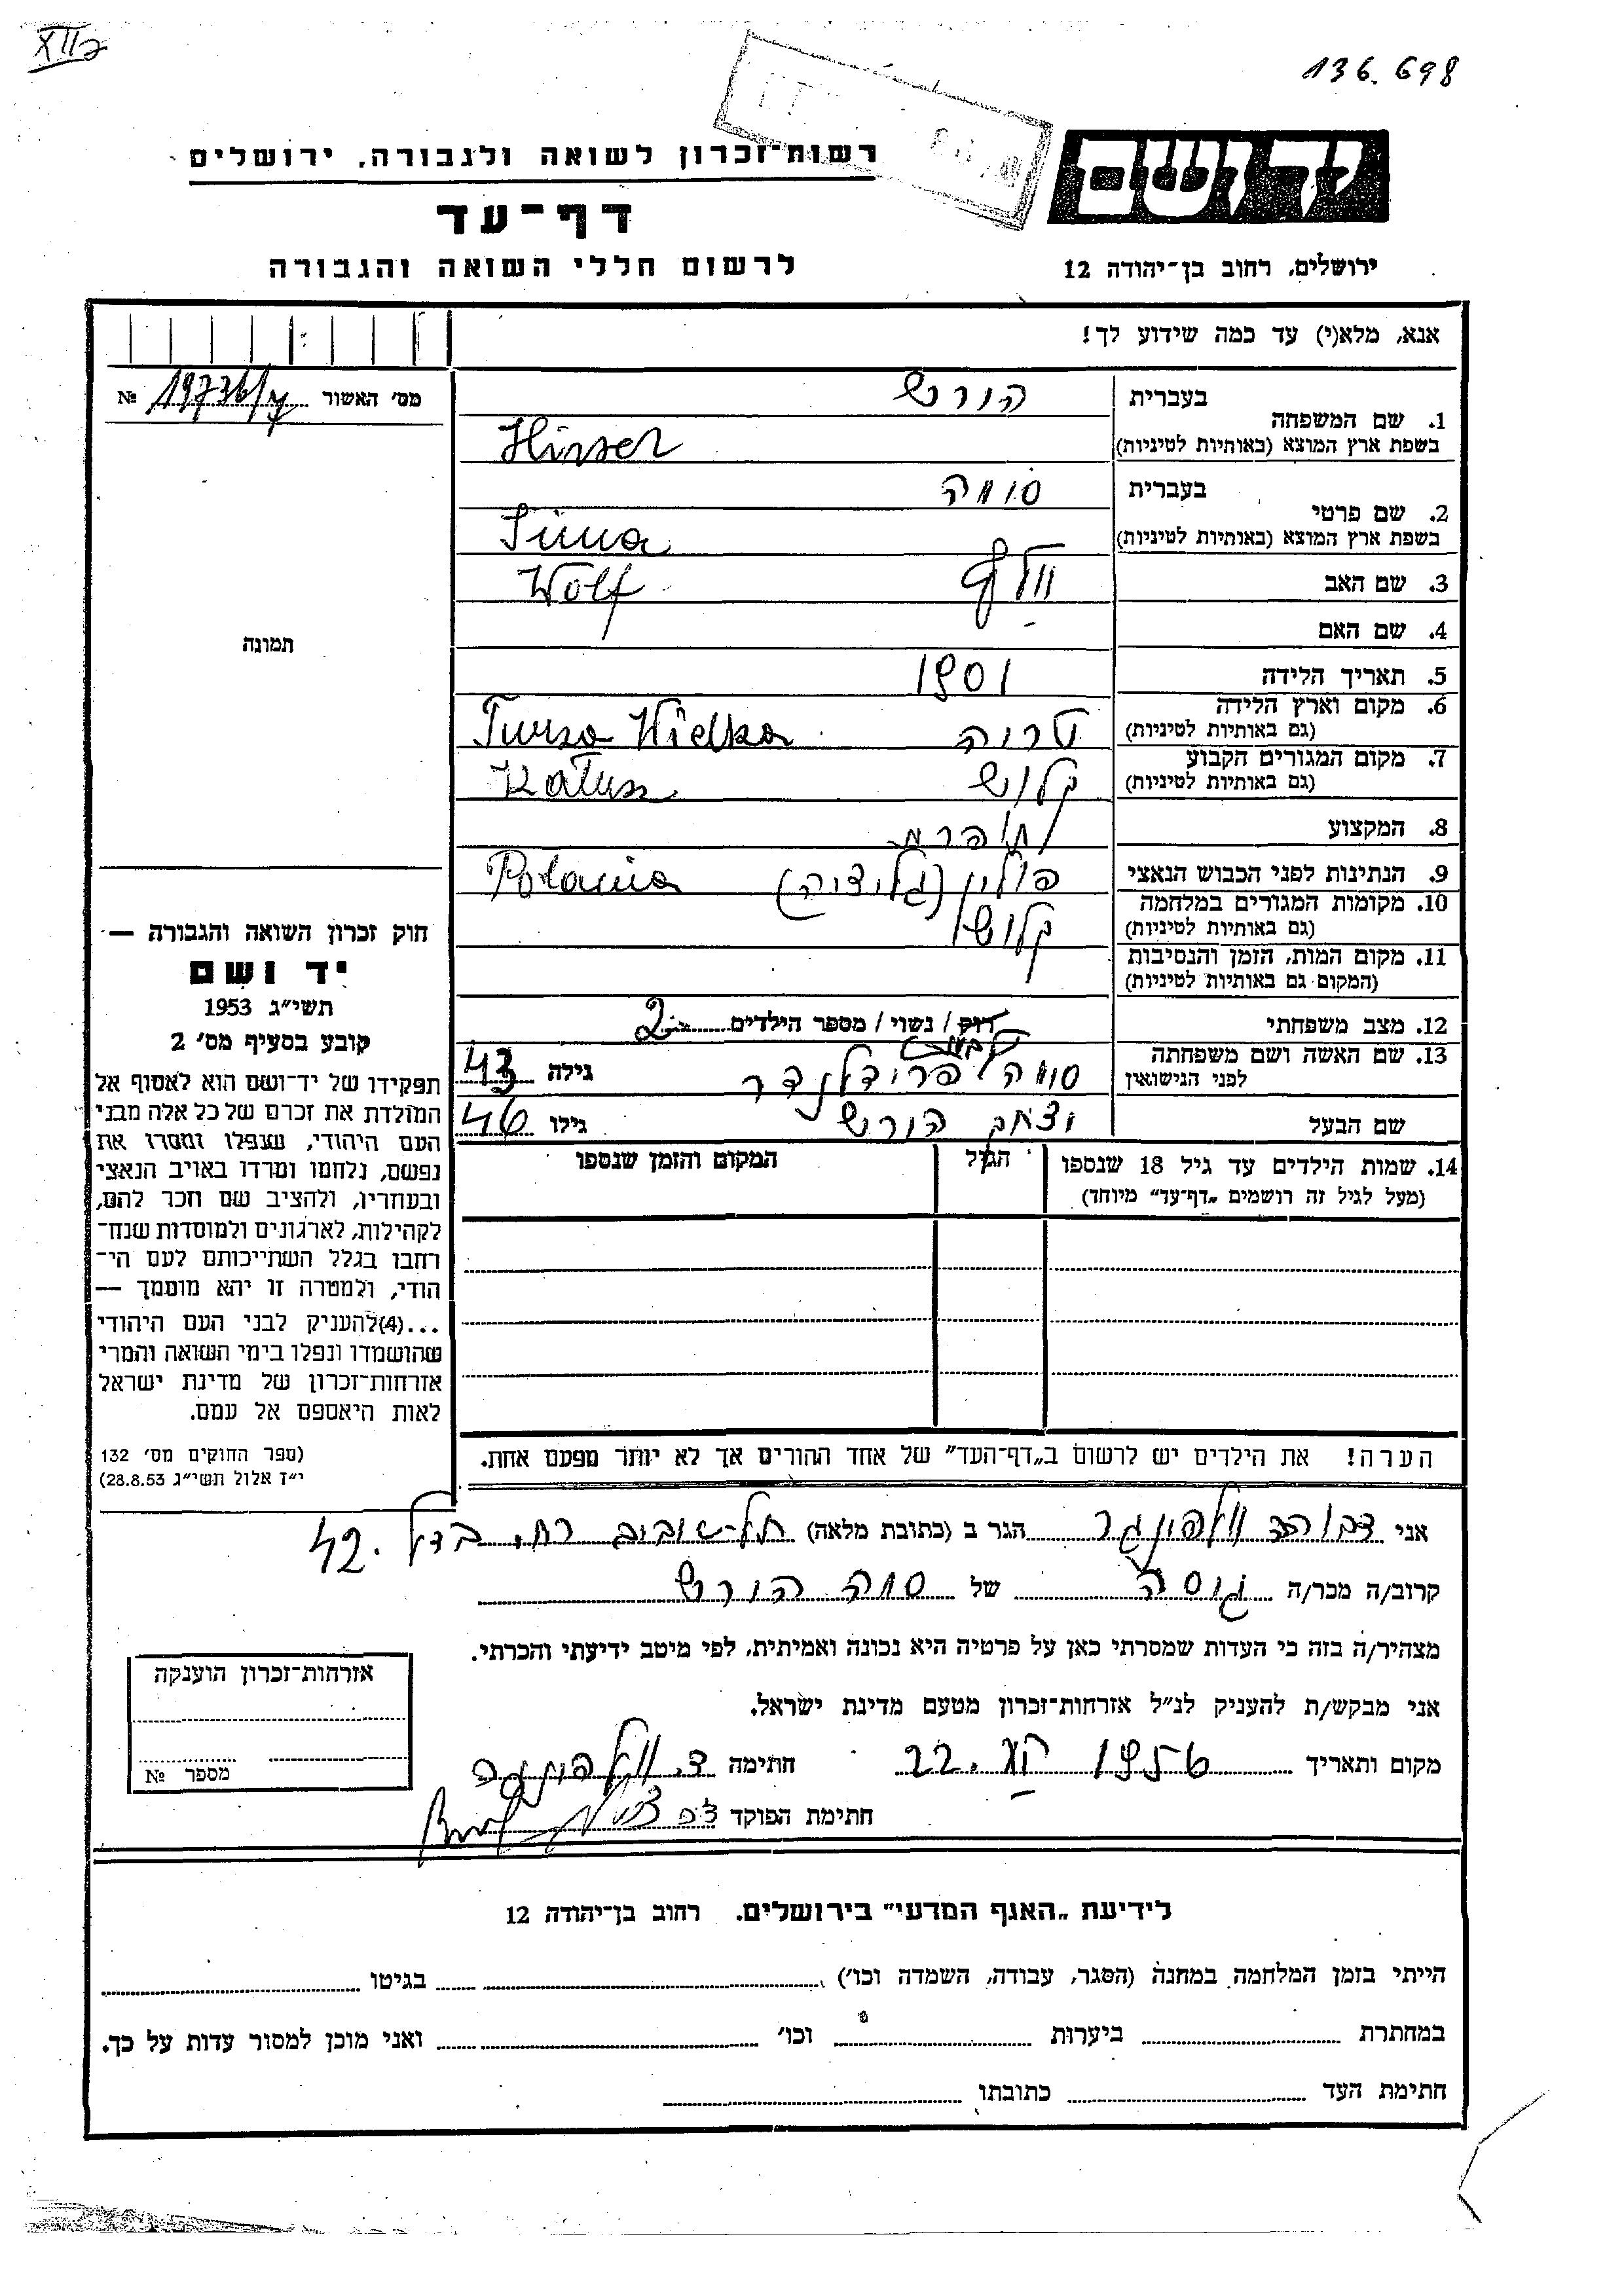 XII 2
136.698
רשות־זכרון לשואה ולגבורה, ירושלים
יד ושם
דף־עד
לרשום חללי השואה והגבורה
ירושלים, רחוב בן־יהודה 12
אנא, מלא(י) עד כמה שידוע לך!
מס׳ האשור № 19736/
1. שם המשפחה
בעברית הורש
בשפת ארץ המוצא (באותיות לטיניות)
2. שם פרטי
בעברית סימה
בשפת ארץ המוצא (באותיות לטיניות) Sima
3. שם האב וולף Wolf
4. שם האם -
5. תאריך הלידה 1901
6. מקום וארץ הלידה
(גם באותיות לטיניות) Turza Wielka
7. מקום המגורים הקבוע קלוש
(גם באותיות לטיניות) Kałusz
8. המקצוע תופרת
9. הנתינות לפני הכבוש הנאצי פולין (גליציה) Polania
10. מקומות המגורים במלחמה קלוש
(גם באותיות לטיניות)
11. מקום המות, הזמן והנסיבות
(המקום גם באותיות לטיניות)
12. מצב משפחתי רוק / נשוי / מספר הילדים 2
13. שם האשה ושם משפחתה
לפני הנישואין סימה פרידלנדר גילה 43
שם הבעל יצחק הורש גילו 46
14. שמות הילדים עד גיל 18 שנספו
(מעל לגיל זה רושמים „דף־עד” מיוחד)
הגיל
המקום והזמן שנספו
הערה! את הילדים יש לרשום ב„דף־העד” של אחד ההורים אך לא יותר מפעם אחת.
תמונה
חוק זכרון השואה והגבורה —
יד ושם
תשי״ג 1953
קובע בסעיף מס׳ 2
תפקידו של יד־ושם הוא לאסוף אל
המולדת את זכרם של כל אלה מבני
העם היהודי, שנפלו ומסרו את
נפשם, נלחמו ומרדו באויב הנאצי
ובעוזריו, ולהציב שם וזכר להם,
לקהילות, לארגונים ולמוסדות שנח־
רבו בגלל השתייכותם לעם הי־
הודי, ולמטרה זו יהא מוסמך —
...(4) להעניק לבני העם היהודי
שהושמדו ונפלו בימי השואה והמרי
אזרחות־זכרון של מדינת ישראל
לאות היאספם אל עמם.
(ספר החוקים מס׳ 132
י״ז אלול תשי״ג 28.8.53)
אני דבורה הגר ב (כתובת מלאה) תל־אביב רח. 42
קרוב/ה מכר/ה גיסה של סימה הורש
מצהיר/ה בזה כי העדות שמסרתי כאן על פרטיה היא נכונה ואמיתית, לפי מיטב ידיעתי והכרתי.
אני מבקש/ת להעניק לנ״ל אזרחות־זכרון מטעם מדינת ישראל.
מקום ותאריך 22. 1956 חתימה ד.
חתימת הפוקד
אזרחות־זכרון הוענקה
מספר №
לידיעת „האגף המדעי” בירושלים. רחוב בן־יהודה 12
הייתי בזמן המלחמה במחנה (הסגר, עבודה, השמדה וכו׳) בגיטו
במחתרת ביערות וכו׳ ואני מוכן למסור עדות על כך.
חתימת העד כתובתו